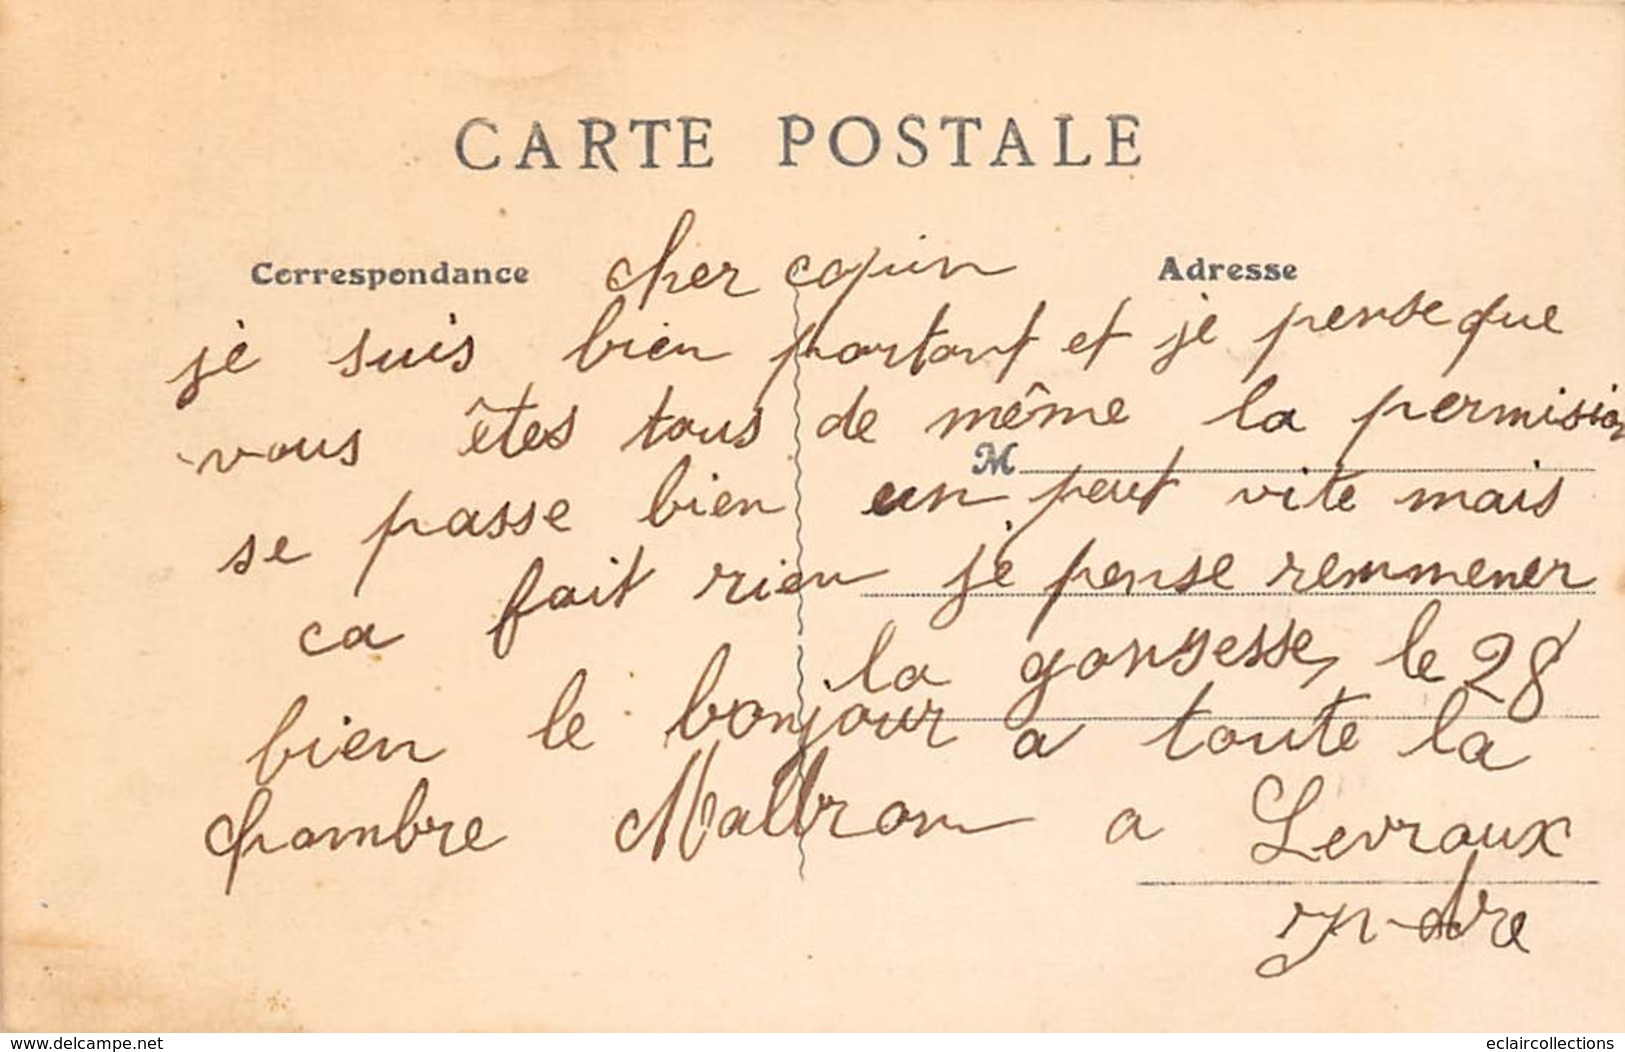 CARTE POSTALE
Correspondance
Adresse
cher copin
je suis bien portant et je pense que
vous êtes tous de même la permision
M
se passe bien un peut vite mais
ca fait rien je pense remmener
la gonsesse, le 28
bien le bonjour a toute la
chambre Malbron a Levroux
Indre
www.delcampe.net
eclaircollections